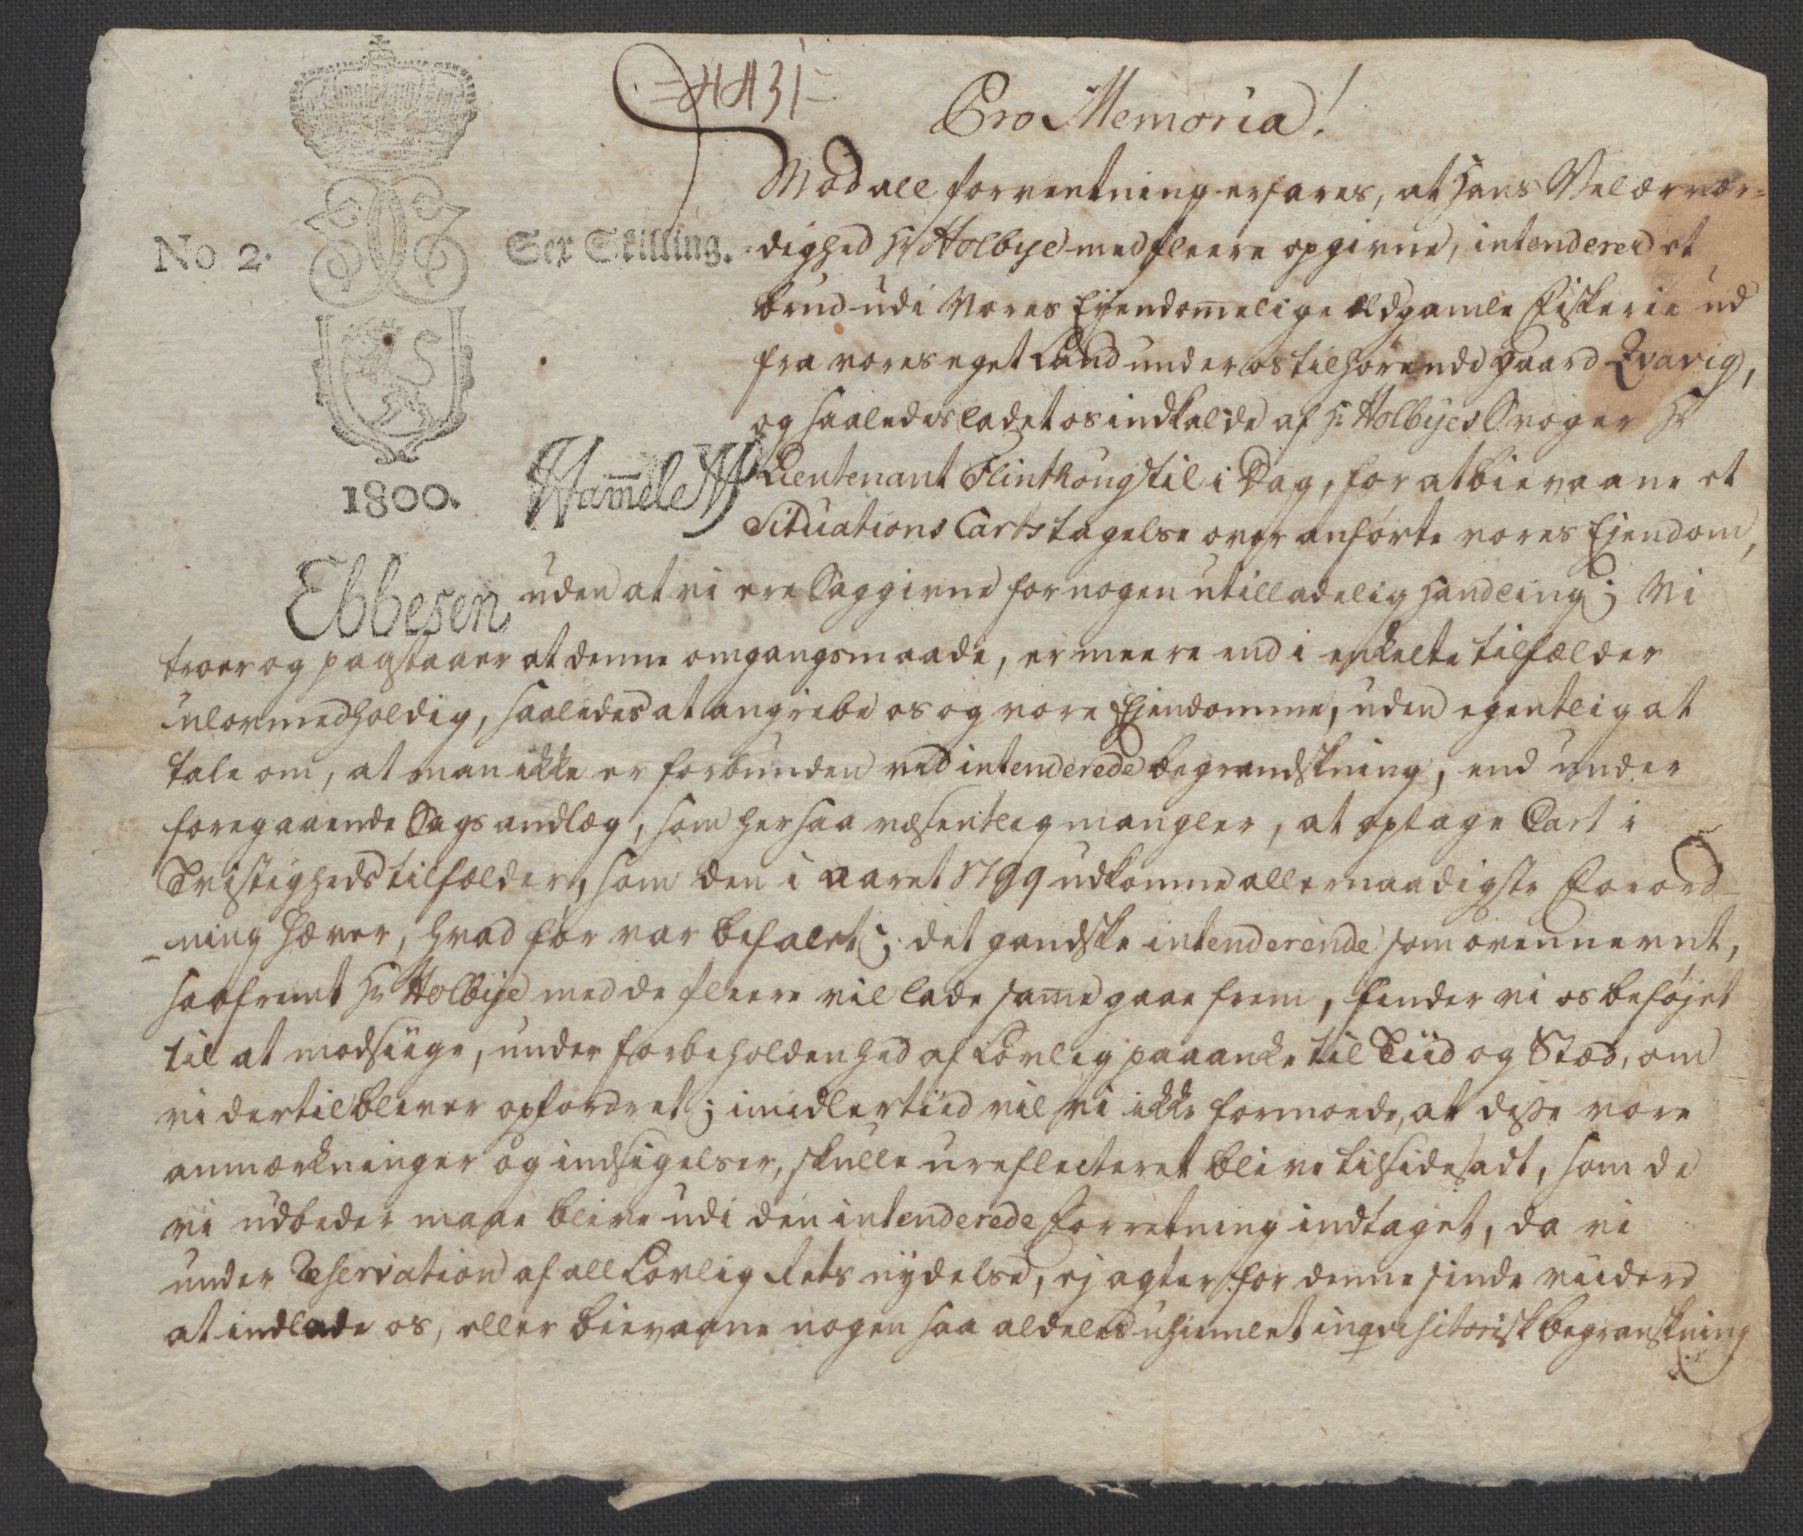 =4431=
Pro Memoria!
Mod all forventning erfares, at hans Velærvær=
No 2. Sex Skilling.
dighed Hr Holbye med fleere opgivne, intenderer et
brud udi vores Eyendommelige ældgamle Fiskerie ud
fra vores eget Land under os tilhørende gaard Qvarig,
og saaledes ladet os indkalde af Hr Holbyes Svoger Hr
1800. Hamele
Lieutenant Flinthoug til i Dag, for at bievaane et
Situations Carts tagelse over anførte vores Ejendom,
Ebbesen
uden at vi ere Saggivne for nogen utilladelig handling; Vi
troer og paastaaer at denne omgangsmaade, er meere end i enkelte tilfælder
ulovmedholdig, saaledes at angribe os og vore Ejendomme, uden egentlig at
tale om, at man ikke er forbunden ved intenderede begrandskning, end under
foregaaende Sags andlæg, som her saa væsentlig mangler, at optage Cart i
Tvistighedstilfælder, som den i aaret 1799 udkomne allernaadigste Forord-
-ning hæver, hvad før var befalet; det gandske intenderende som ovennevnt,
saafremt Hr Holbye med de fleere vil lade same gaae frem, finder vi os beføjet
til at modsiige, under forbeholdenhed af Lovlig paaanke til Tiid og Stæd, om
vi dertil bliver opfordret; imidlertiid vil vi ikke formode, at disse vore
anmærkninger og indsigelser, skulle ureflecteret blive tilsidesadt, som de
vi udbeder maae blive udi den intenderede Forretning indtaget, da vi
under Reservation af all Lovlig Rets nydelse, ej agter for denne sinde viidere
at indlade os, eller bievaane nogen saa aldeles usiemlet inqvisitorisk begranskning